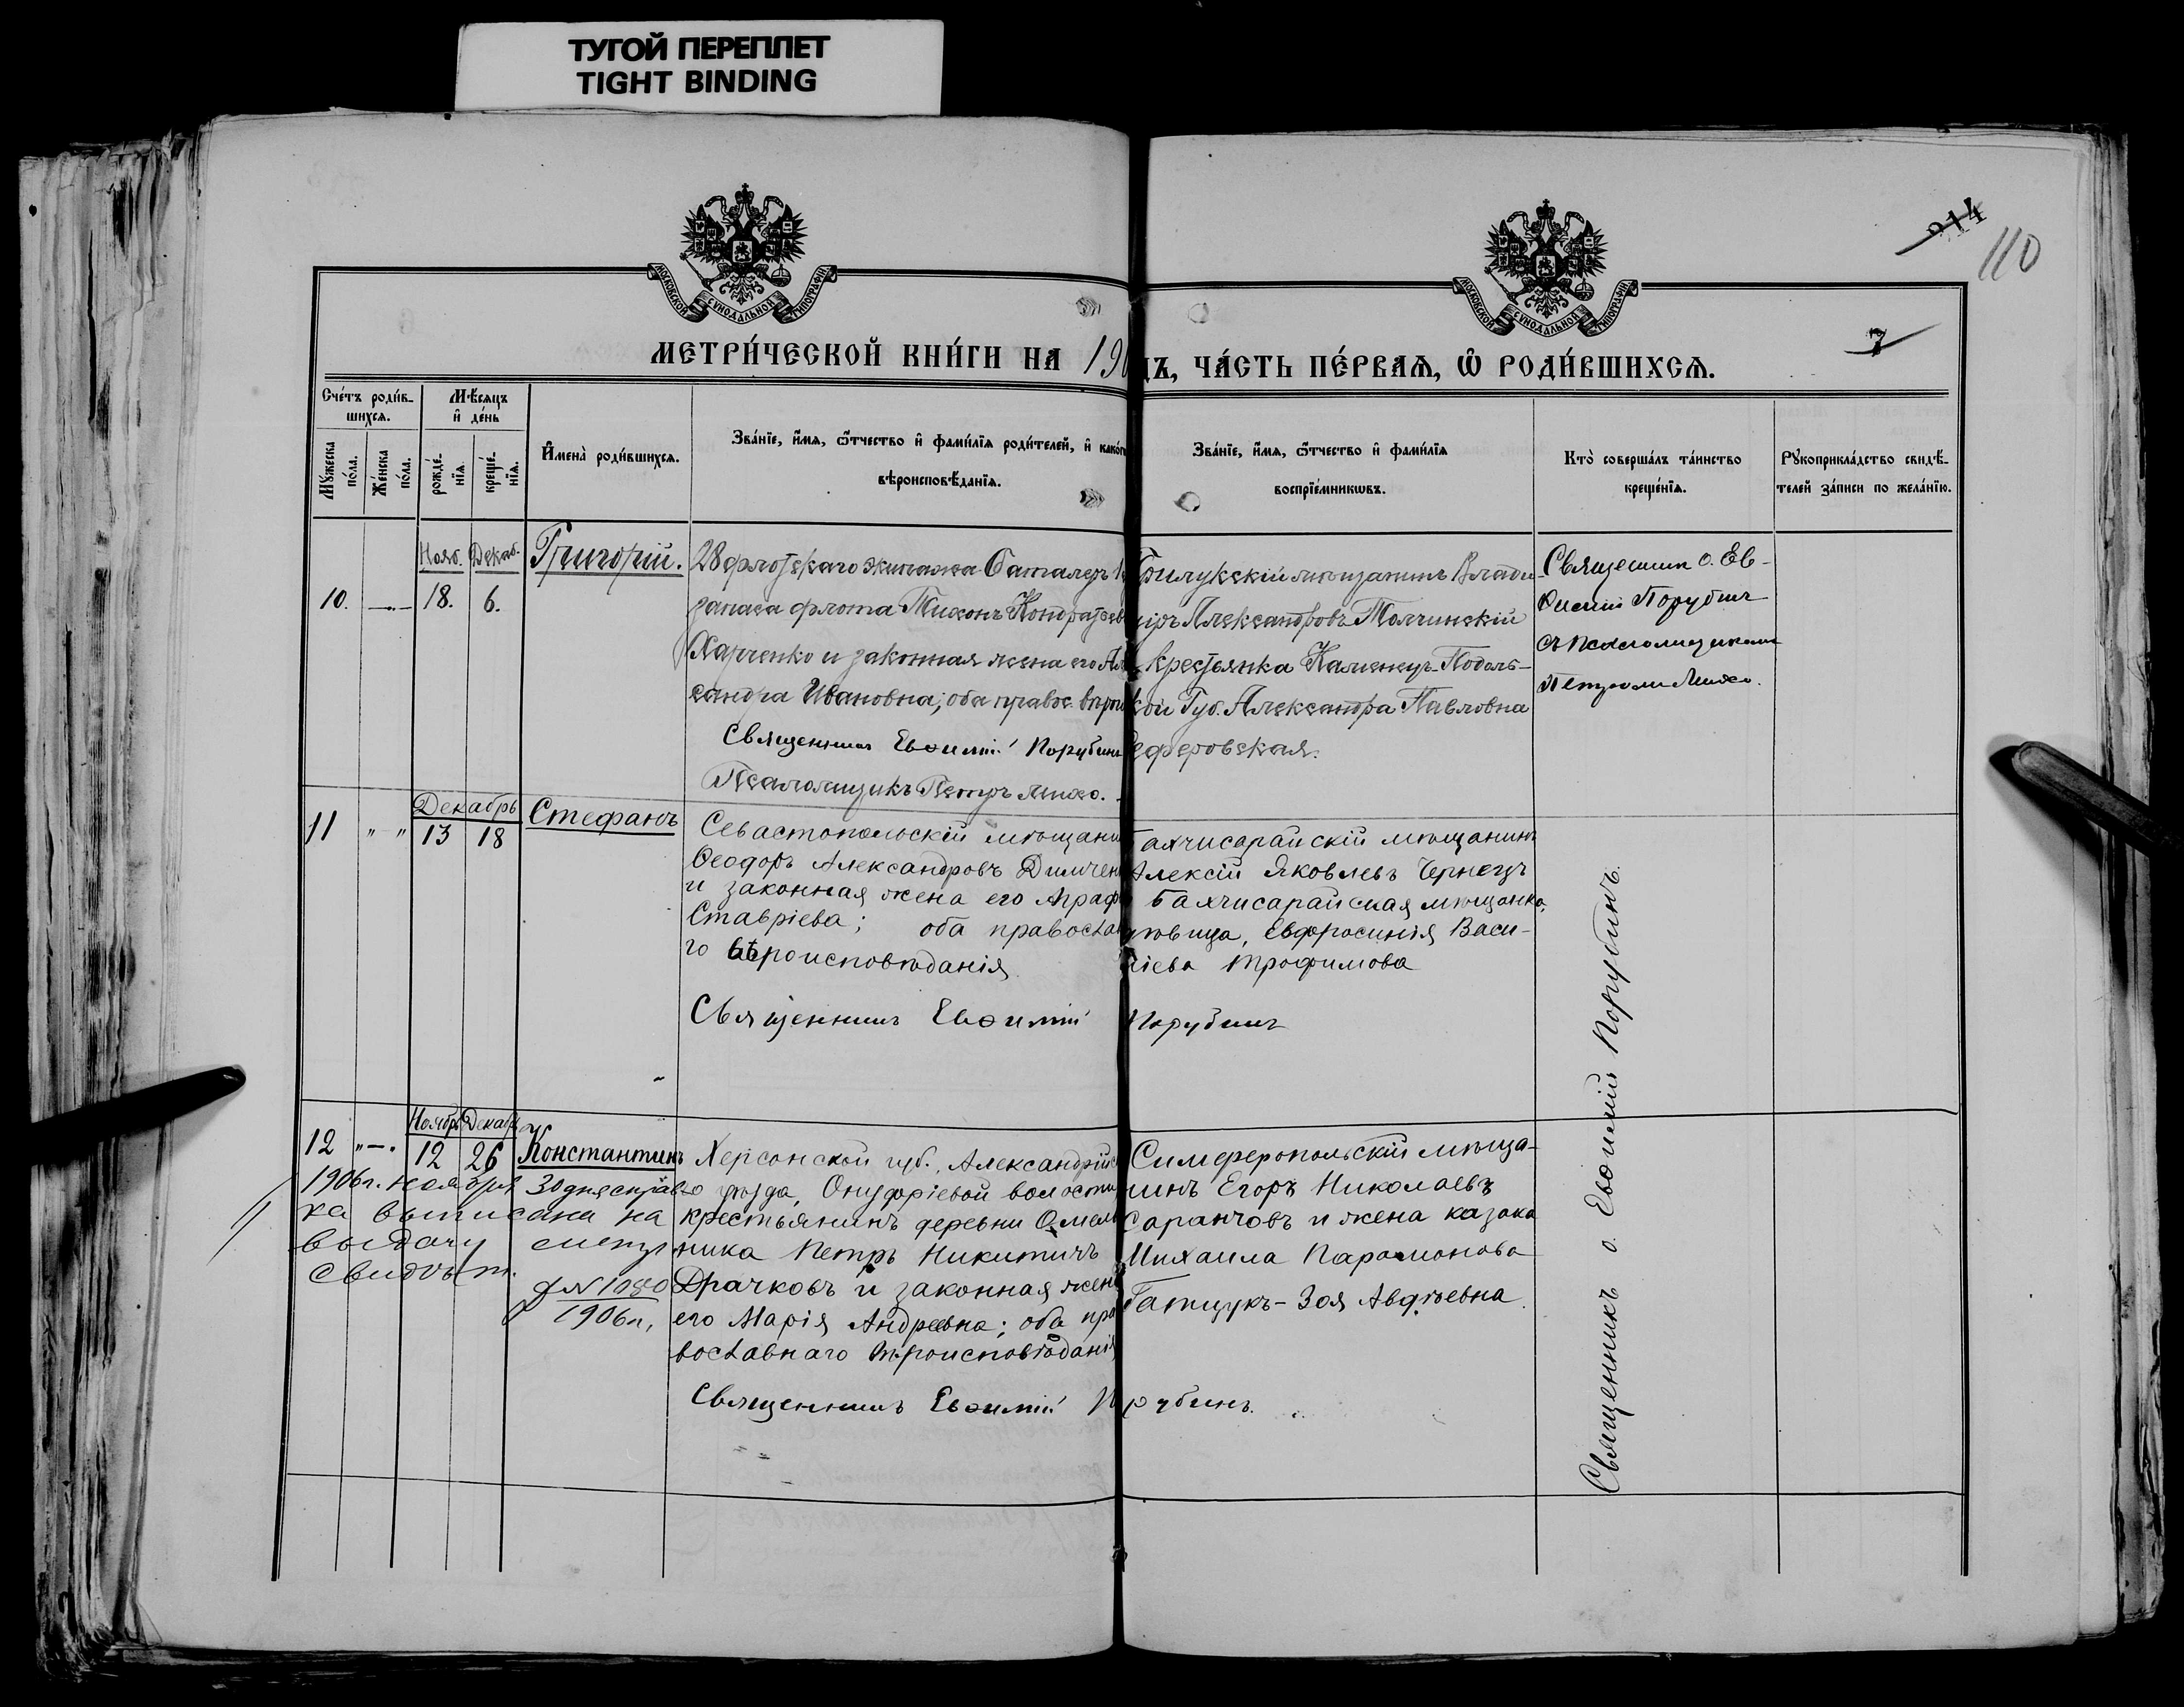 ТУГОЙ ПЕРЕПЛЕТ
TIGHT BINDING
МОСКОВСКОЙ СУНОДАЛЬНОЙ ТИПОГРАФІИ
МОСКОВСКОЙ СУНОДАЛЬНОЙ ТИПОГРАФІИ
214
110
7
МЕТРИ́ЧЕСКОЙ КНИ́ГИ НА 190
ДЪ, ЧА́СТЬ ПЕ́РВАѦ, Ѡ РОДИ́ВШИХСѦ.
Сче́тъ роди́в-
шихсѧ.
Мѣ́сѧцъ
и҆ де́нь
Мꙋ́жеска
по́ла.
Же́нска
по́ла.
рожде́-
нїѧ.
креще́-
нїѧ.
И҆мена̀ роди́вшихсѧ.
Зва́нїе, и҆́мѧ, ѻ҆́тчество и҆ фами́лїѧ роди́телей, и҆ како́г
вѣроисповѣ́данїѧ.
Зва́нїе, и҆́мѧ, ѻ҆́тчество и҆ фами́лїѧ
воспрїе́мникѡвъ.
Кто̀ соверша́лъ та́инство
креще́нїѧ.
Рꙋкоприкла́дство свидѣ́-
телей за́писи по жела́нїю.
Нояб. Декаб.
10. —.— 18. 6.
Григорій.
28 флотскаго экипажа Баталеръ
запаса флота Тихонъ Кондратьев
Харченко и законная жена его Ал
сандра Ивановна; оба правос. вѣрои
Священникъ Евѳимій Порубинъ
Псаломщикъ Петръ
Прилукскій мѣщанинъ Влади-
міръ Александровъ Толчинскій
крестьянка Каменецъ-Подоль-
ской Губ. Александра Павловна
феровская.
Священникъ о. Ев-
ѳимій Порубинъ
съ псаломщикомъ
Петромъ
Декабрь
11 " " 13 18
Стефанъ
Севастопольскій мѣщани
Ѳеодоръ Александровъ Димчен
и законная жена его Аграф
Ставріева; оба православ
го вѣроисповѣданія
Священникъ Евѳимій Порубинъ
Бахчисарайскій мѣщанинъ
Алексій Яковлевъ Чернецъ
Бахчисарайская мѣщанка,
дѣвица, Евфросинія Васи-
ліева Трофимова
Ноябрь Декабр
12 "—" 12 26
Константинъ
Херсонской губ., Александрійс
го уѣзда, Онуфріевой волости
крестьянинъ деревни Омель
ника Петръ Никитичъ
Драчковъ и законная жен
его Марія Андреевна; оба пра
вославнаго вѣроисповѣданія
Священникъ Евѳимій Порубинъ.
Симферопольскій мѣща-
нинъ Егоръ Николаевъ
Саранчовъ и жена казака
Михаила Парамонова
Гатцукъ - Зоя Авдѣевна.
1906 г. ноября 30 дня справ-
ка выписана на
выдачу метр
свидѣт.
№ 1080
1906 г.
Священникъ о. Евѳимій Порубинъ.